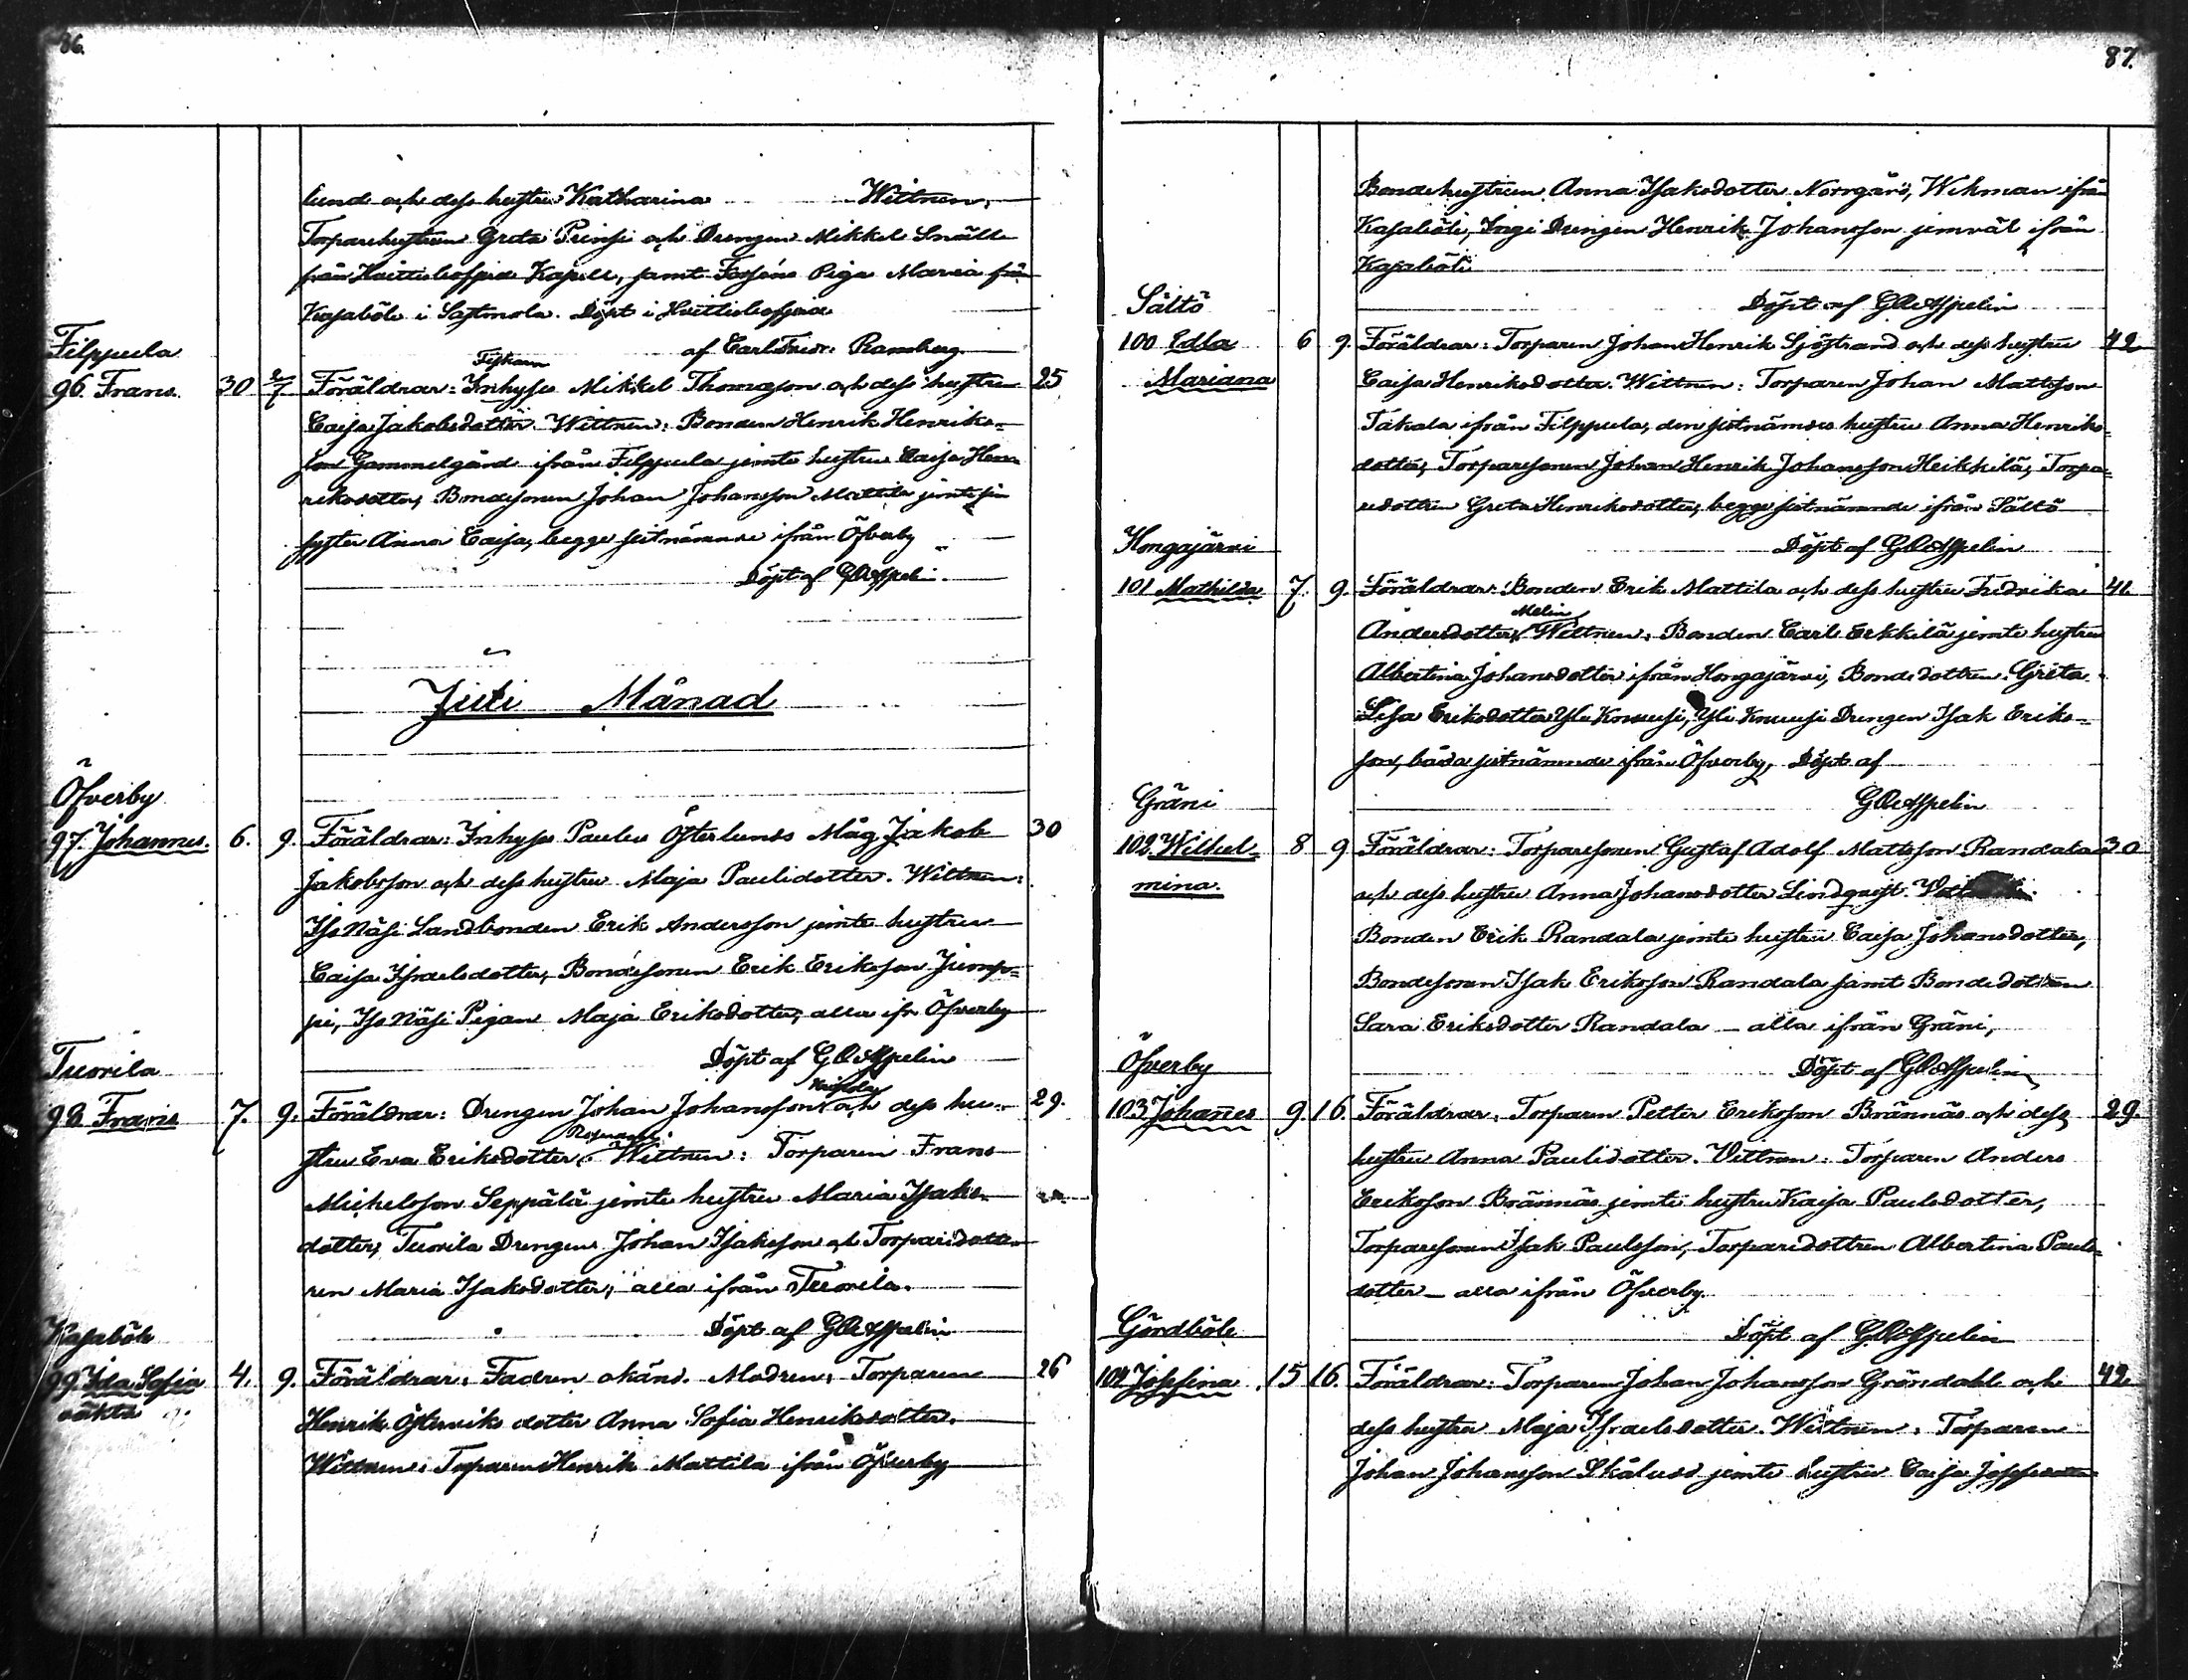 86.
lund och dess hustru Katharina Wittnen,
Torparehustrun Greta Prinsi och Drengen Mikkel Snäll
från Hvittisbofjärd Kapell, samt Piga Maria från
Kasaböle i Sastmola. Döpt i Hvittisbofjärd
af Carl Fredr: Ramberg
Filppula
96. Frans. 30 2/7 Föräldrar: Inhyses Mikkel Thomasson och dess hustru 25
Caisa Jakobsdotter. Wittnen: Bonden Henrik Henriks-
son Gammelgård ifrån Filppula jemte hustru Caisa Hen-
riksdotter, Bondesonen Johan Johansson Mattila jemte sin
syster Anna Caisa, begge sistnämnde ifrån Öfverby
Döpt af G O Aspelin
Juli Månad
Öfverby
97. Johannes. 6. 9. Föräldrar: Inhyses Paulus Österlunds Måg Jakob 30
Jakobsson och dess hustru Maja Paulidotter. Wittnen:
Iso Näsi Landbonden Erik Andersson jemte hustru
Caisa Israelsdotter, Bondesonen Erik Eriksson Jump-
pi, Iso Näsi Pigan Maja Eriksdotter, alla ifr Öfverby
Döpt af G O Aspelin
Tuorila
98 Frans 7. 9. Föräldrar: Drengen Johan Johansson och dess hu- 29.
stru Eva Eriksdotter. Wittnen: Torparen Frans
Mickelsson Seppälä jemte hustru Maria Isaks-
dotter, Tuorila Drengen Johan Isaksson och Torparedott-
ren Maria Isaksdotter, alla ifrån Tuorila.
Döpt af G O Aspelin
Kasaböle
99. Ida Sofia 4. 9. Föräldrar: Fadren okänd. Modren: Torparen 26
oäkta
Henrik Österviks dotter Anna Sofia Henriksdotter.
Wittnen: Torparen Henrik Mattila ifrån Öfverby
87.
Bondehustrun Anna Isaksdotter Norrgård, Wekman ifrån
Kasaböle, Ingi Drengen Henrik Johansson jemväl ifrån
Kasaböle
Döpt af G O Aspelin
Sältö
100 Edla 6 9. Föräldrar: Torparen Johan Henrik Sjöstrand och dess hustru 42
Mariana Caisa Henriksdotter. Wittnen: Torparen Johan Mattsson
Takala ifrån Filppula, den sistnämdes hustru Anna Henriks-
dotter, Torparesonen Johan Henrik Johansson Heikkilä, Torpa-
redottren Greta Henriksdotter, begge sistnämnde ifrån Sältö
Döpt af G O Aspelin
Hongajärvi
101 Mathilda 7. 9. Föräldrar: Bonden Erik Mattila och dess hustru Fredrika 41.
Melin
Andersdotter. Wittnen: Bonden Carl Erkkilä jemte hustru
Albertina Johansdotter ifrån Hongajärvi, Bondedottren Greta
Lisa Eriksdotter Yli Knuusi, Yli Knuusi Drengen Isak Eriks-
son, båda sistnämnde ifrån Öfverby, Döpt af
G O Aspelin
Gräni
102. Wilhel- 8 9 Föräldrar: Torparesonen Gustaf Adolf Mattsson Randala 30
mina. och dess hustru Anna Johansdotter Lindqvist.
Bonden Erik Randala jemte hustru Caisa Johansdotter,
Bondesonen Isak Eriksson Randala samt Bondedottren
Sara Eriksdotter Randala – alla ifrån Gräni,
Döpt af G O Aspelin
Öfverby
103 Johanes 9. 16. Föräldrar: Torparen Petter Eriksson Brännäs och dess 29.
hustru Anna Paulidotter. Vittnen: Torparen Anders
Eriksson Brännäs jemte hustru Kaisa Paulsdotter,
Torparesonen Isak Paulsson, Torparedottren Albertina Pauls-
dotter – alla ifrån Öfverby.
Döpt af G O Aspelin
Gördböle
104 Josefina 15 16. Föräldrar: Torparen Johan Johansson Gröndahl och 42
dess hustru Maja Israelsdotter. Wittnen: Torparen
Johan Johansson jemte hustru Caisa Josefsdotter